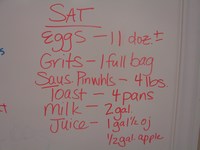 SAT
Eggs – 11 doz ±
Grits – 1 full bag
Saus. Pinwhls – 4 lbs.
Toast – 4 pans
Milk – 2 gal.
Juice – 1 gal ½ oj
½ gal. apple